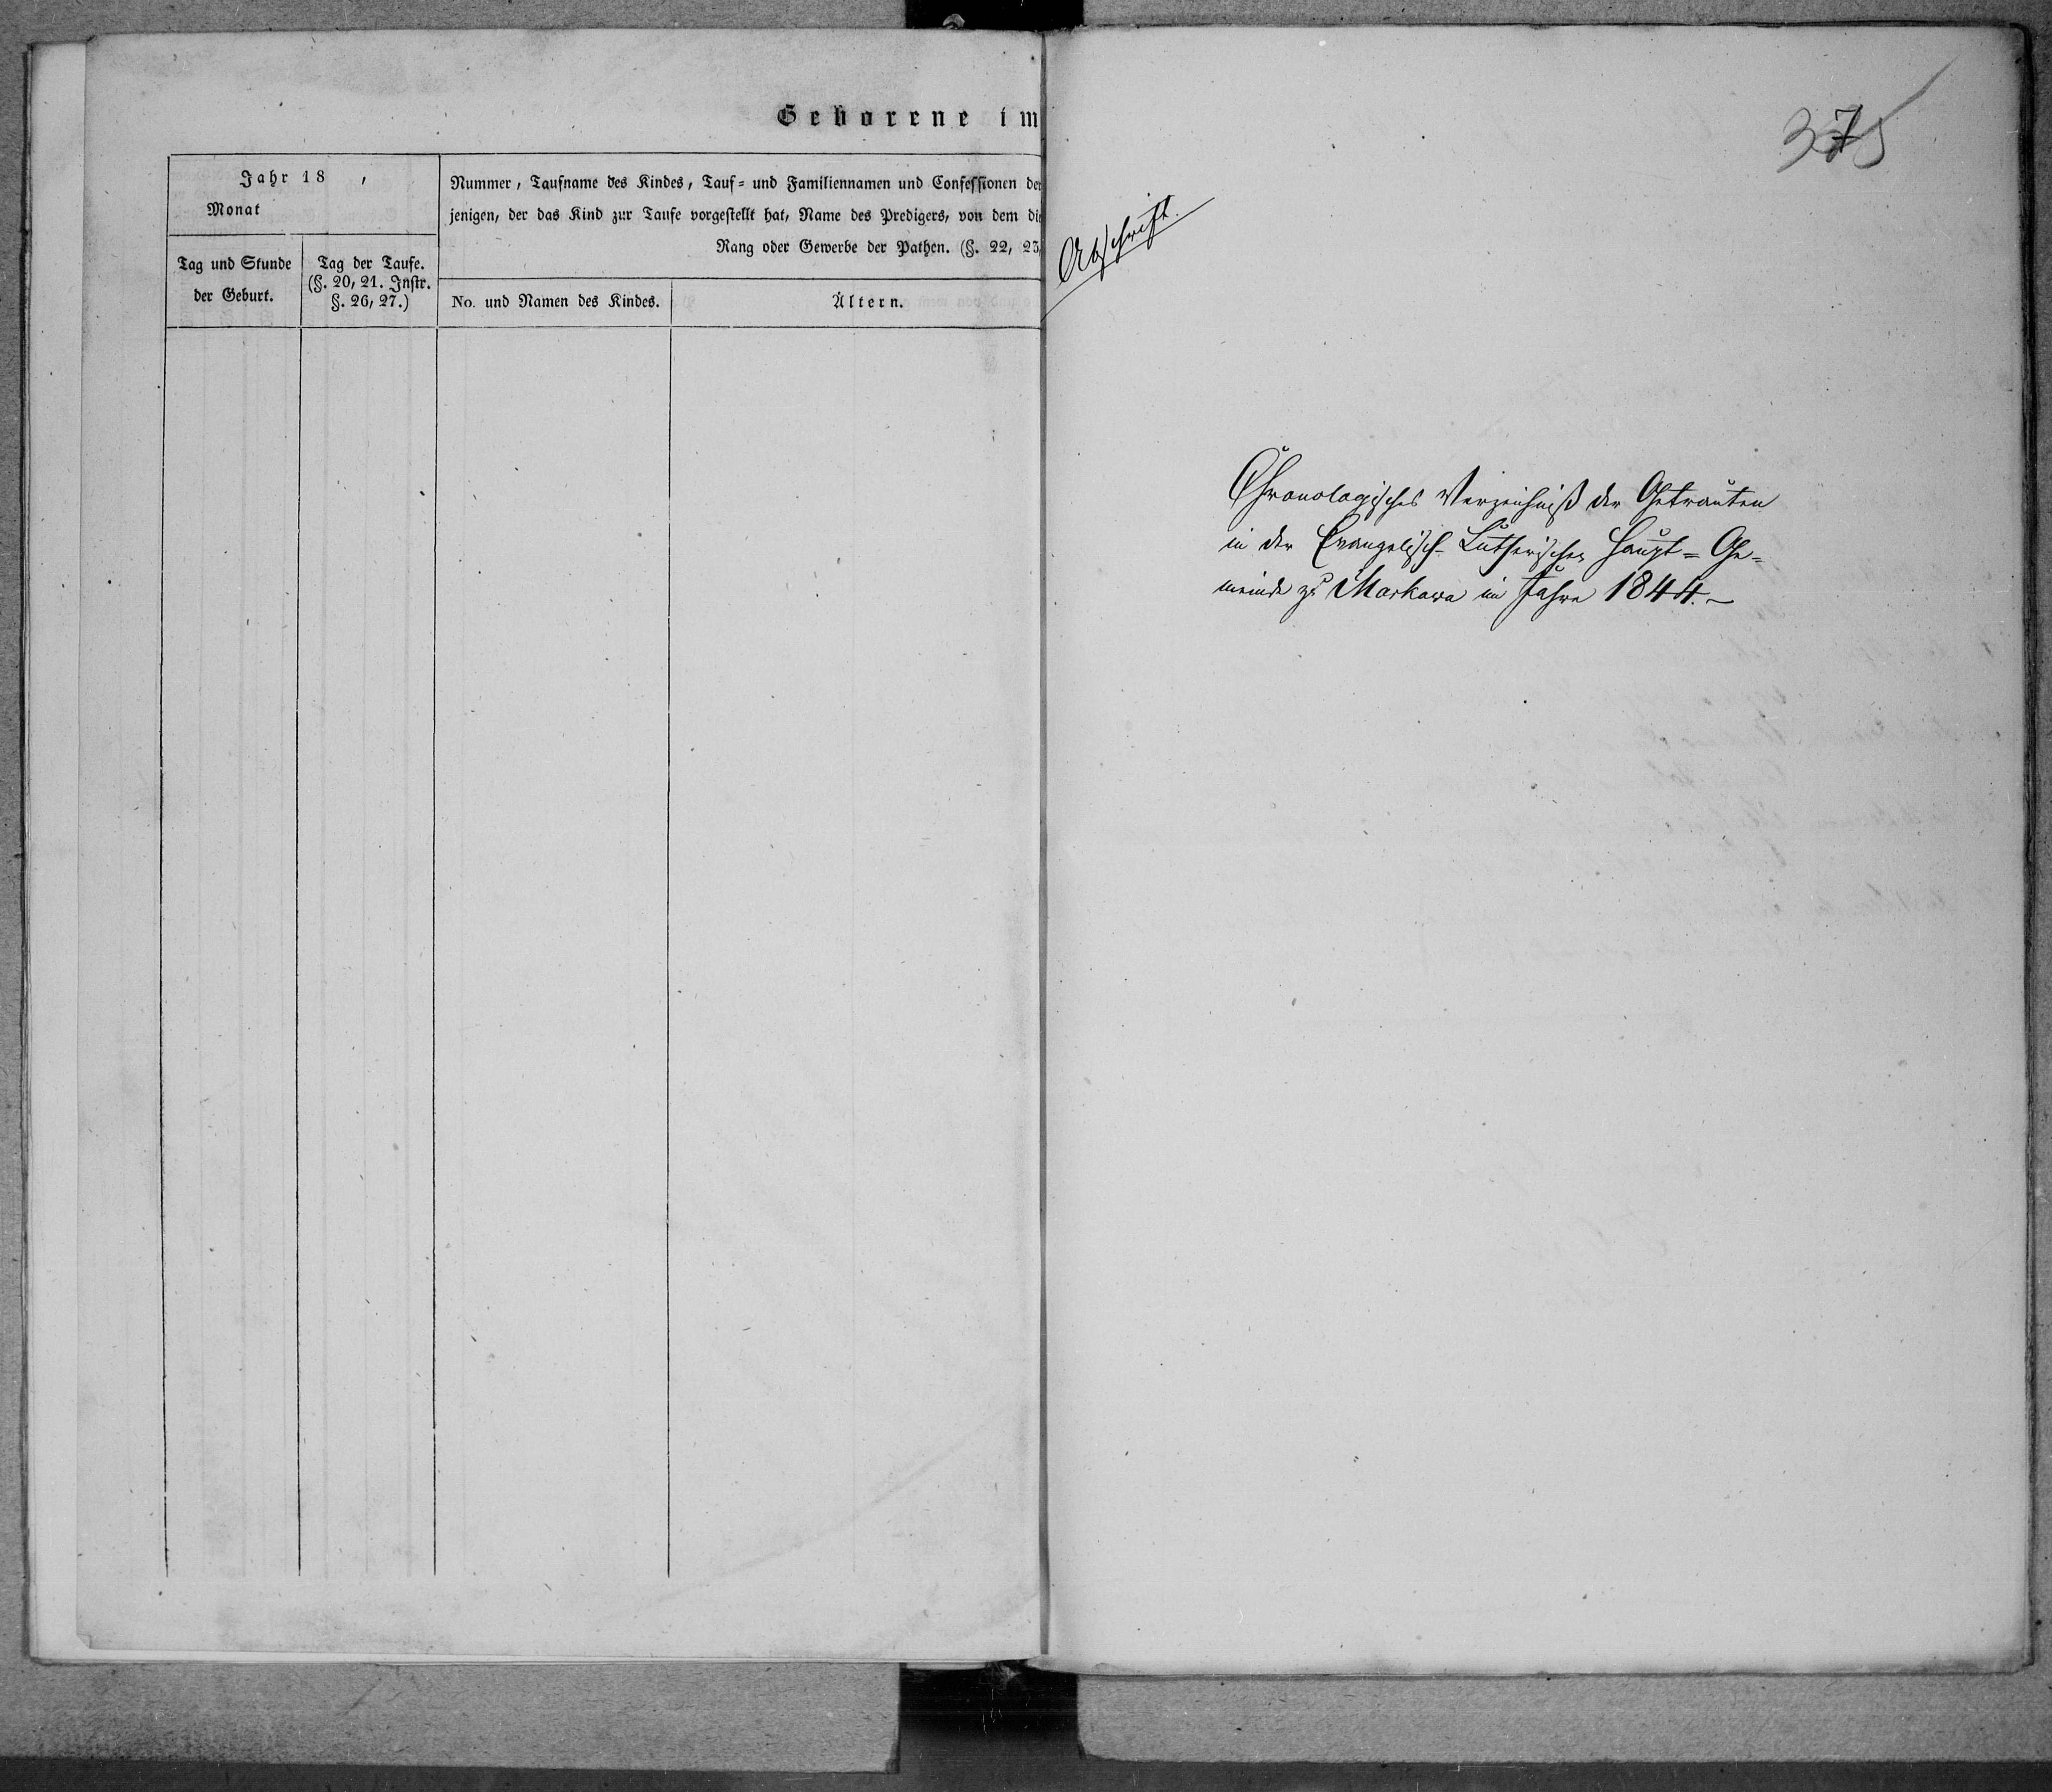 Geborene im
Jahr 18 ,
Monat
Nummer, Taufname des Kindes, Tauf- und Familiennamen und Confessionen der
jenigen, der das Kind zur Taufe vorgestellt hat, Name des Predigers, von dem di
Rang oder Gewerbe der Pathen. (§. 22, 23,
Tag und Stunde
der Geburt.
Tag der Taufe.
(§. 20, 21. Instr.
§. 26, 27.)
No. und Namen des Kindes.
Ältern.
Abschrift.
Chronologisches Verzeichniß der Getrauten
in der Evangelisch-Lutherischen Haupt-Ge-
meinde zu Moskowa im Jahre 1844.